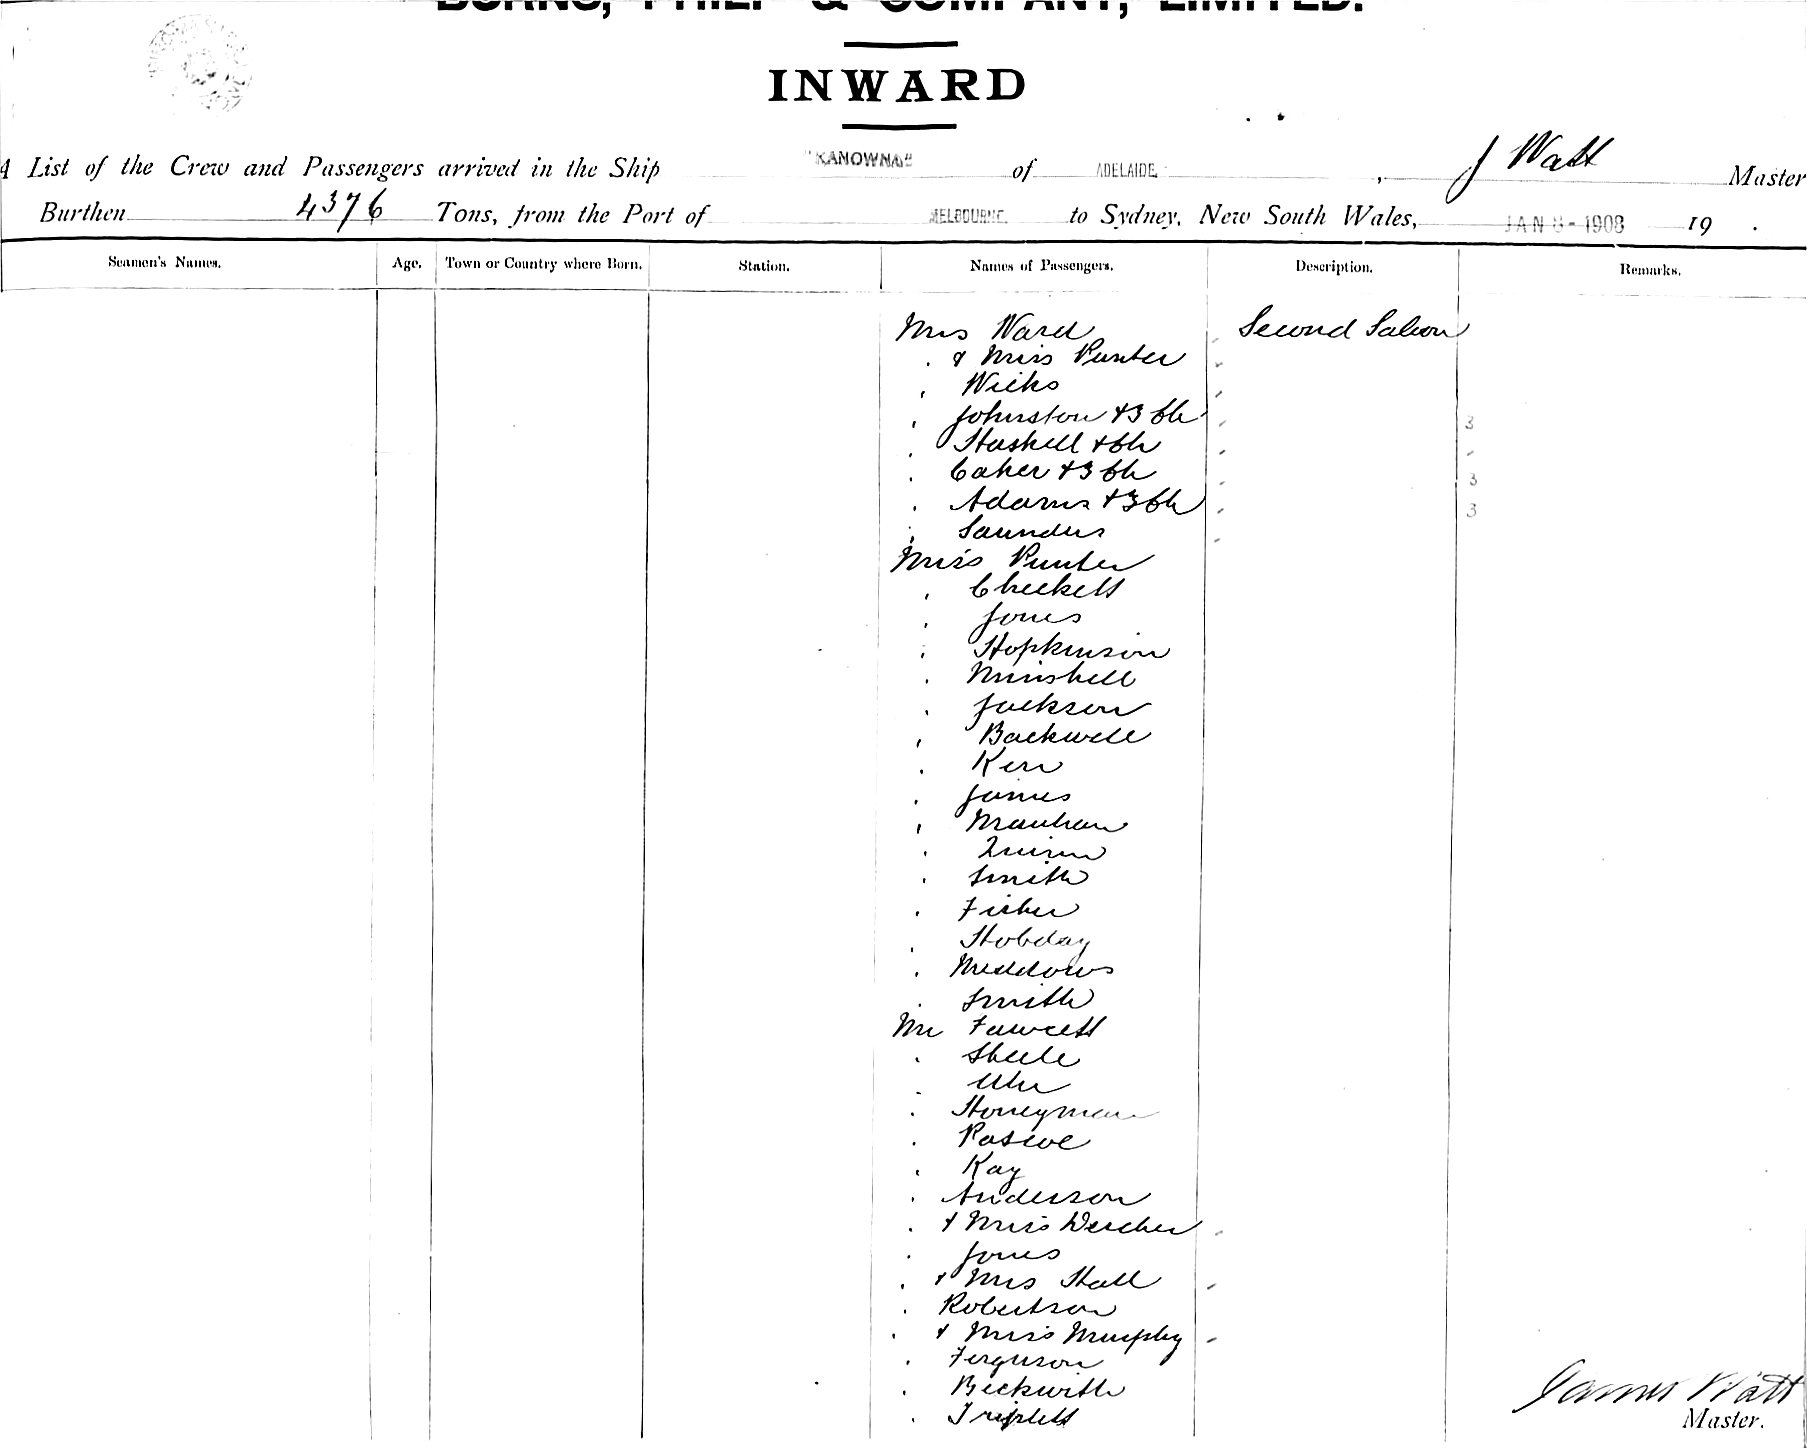 BURNS, PHILP & COMPANY, LIMITED.
INWARD
A List of the Crew and Passengers arrived in the Ship "KANOWNA" of ADELAIDE, J Watt Master
Burthen 4376 Tons, from the Port of MELBOURNE to Sydney, New South Wales, JAN 8-1908 19 .
Seamen's Names. Age. Town or Country where Born. Station. Names of Passengers. Description. Remarks.
Mrs Ward Second Saloon
" & Miss Punter
" Wicks
" Johnston +3 Ch 3
" Haskell + Ch
" Caker +3 Ch 3
" Adams +3 Ch 3
" Saunders
Miss Punter
" Checkett
" Jones
" Hopkinson
" Minshell
" Jackson
" Backwell
" Kerr
" James
" Quinn
" Smith
" Fisher
" Hobday
" Meddows
" Smith
Mr Fawcett
" Steele
" Uhr
" Honeyman
" Pascoe
" Kay
" Anderson
" & Miss
" Jones
" & Mrs Hall
" Robertson
" & Miss Murphy
" Ferguson
" Beckwith
" Triplett
James Watt
Master.